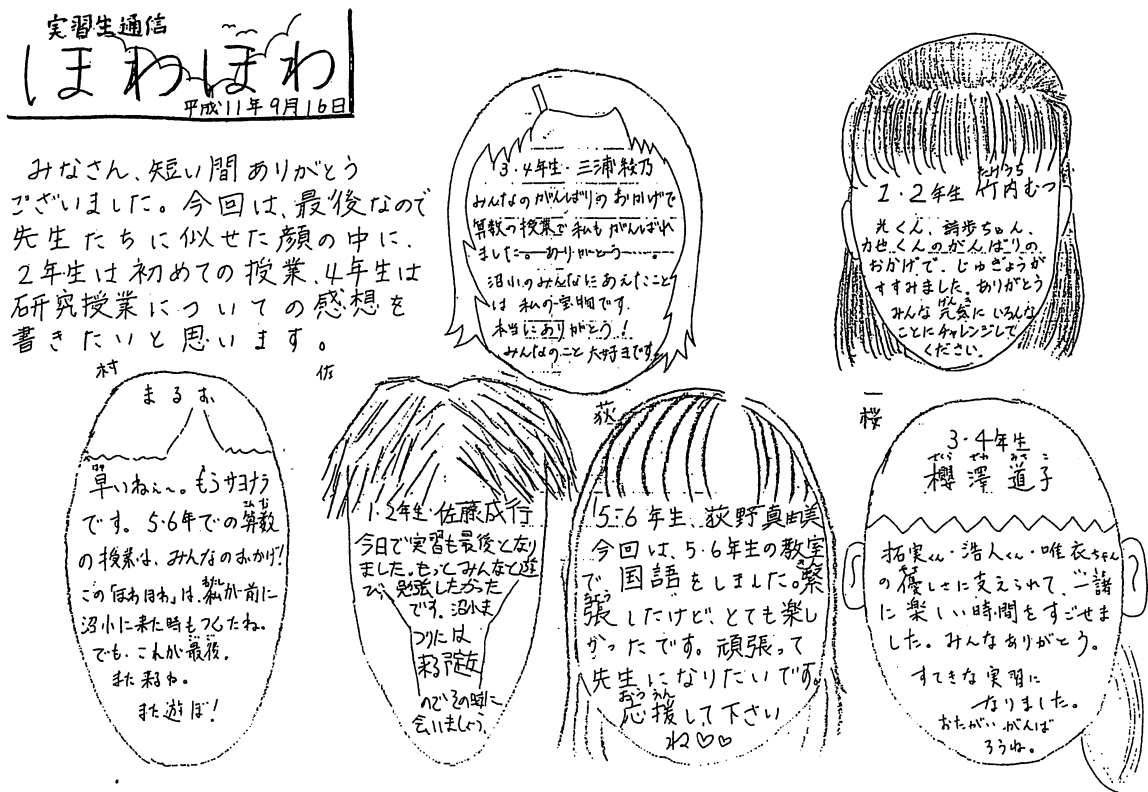 実習生通信
ほわほわ
平成11年9月16日
みなさん、短い間ありがとう
ございました。今回は、最後なので
先生たちに似せた顔の中に、
2年生は初めての授業、4年生は
研究授業についての感想を
書きたいと思います。
3・4年生・三浦綾乃
みんなのがんばりのおかげで
算数の授業で私もがんばれ
ました。ありがとう
沼小のみんなにあえたこと
は私の宝物です。
本当にありがとう!
みんなのこと大好きです。
たけうち
1・2年生 竹内むつ
光くん、詩歩ちゃん、
力也くんのがんばりの
おかげで、じゅぎょうが
すすみました。ありがとう
げんき
みんな元気にいろんな
ことにチャレンジして
ください。
村
まるお
早いねぇ〜。もうサヨナラ
です。5・6年での算数
の授業は、みんなのおかげ!
この「ほわほわ」は、私が前に
沼小に来た時もつくったね。
でも、これが最後。
また来るね。
また遊ぼ!
佐
1・2年生・佐藤成行
今日で実習も最後となり
ました。もっとみんなと遊
び、勉強したかった
です。沼小ま
つりには
来る予定
なのでその時に
会いましょう。
荻
5・6年生、荻野真由美
今回は、5・6年生の教室
で、国語をしました。緊
張したけど、とても楽し
かったです。頑張って
先生になりたいです。
おうえん
応援して下さい
ね♡♡
桜
3・4年生
櫻澤道子
拓実くん・浩人くん・唯衣ちゃん
の優しさに支えられて、一諸
に楽しい時間をすごせま
した。みんなありがとう。
すてきな実習に
なりました。
おたがいがんば
ろうね。